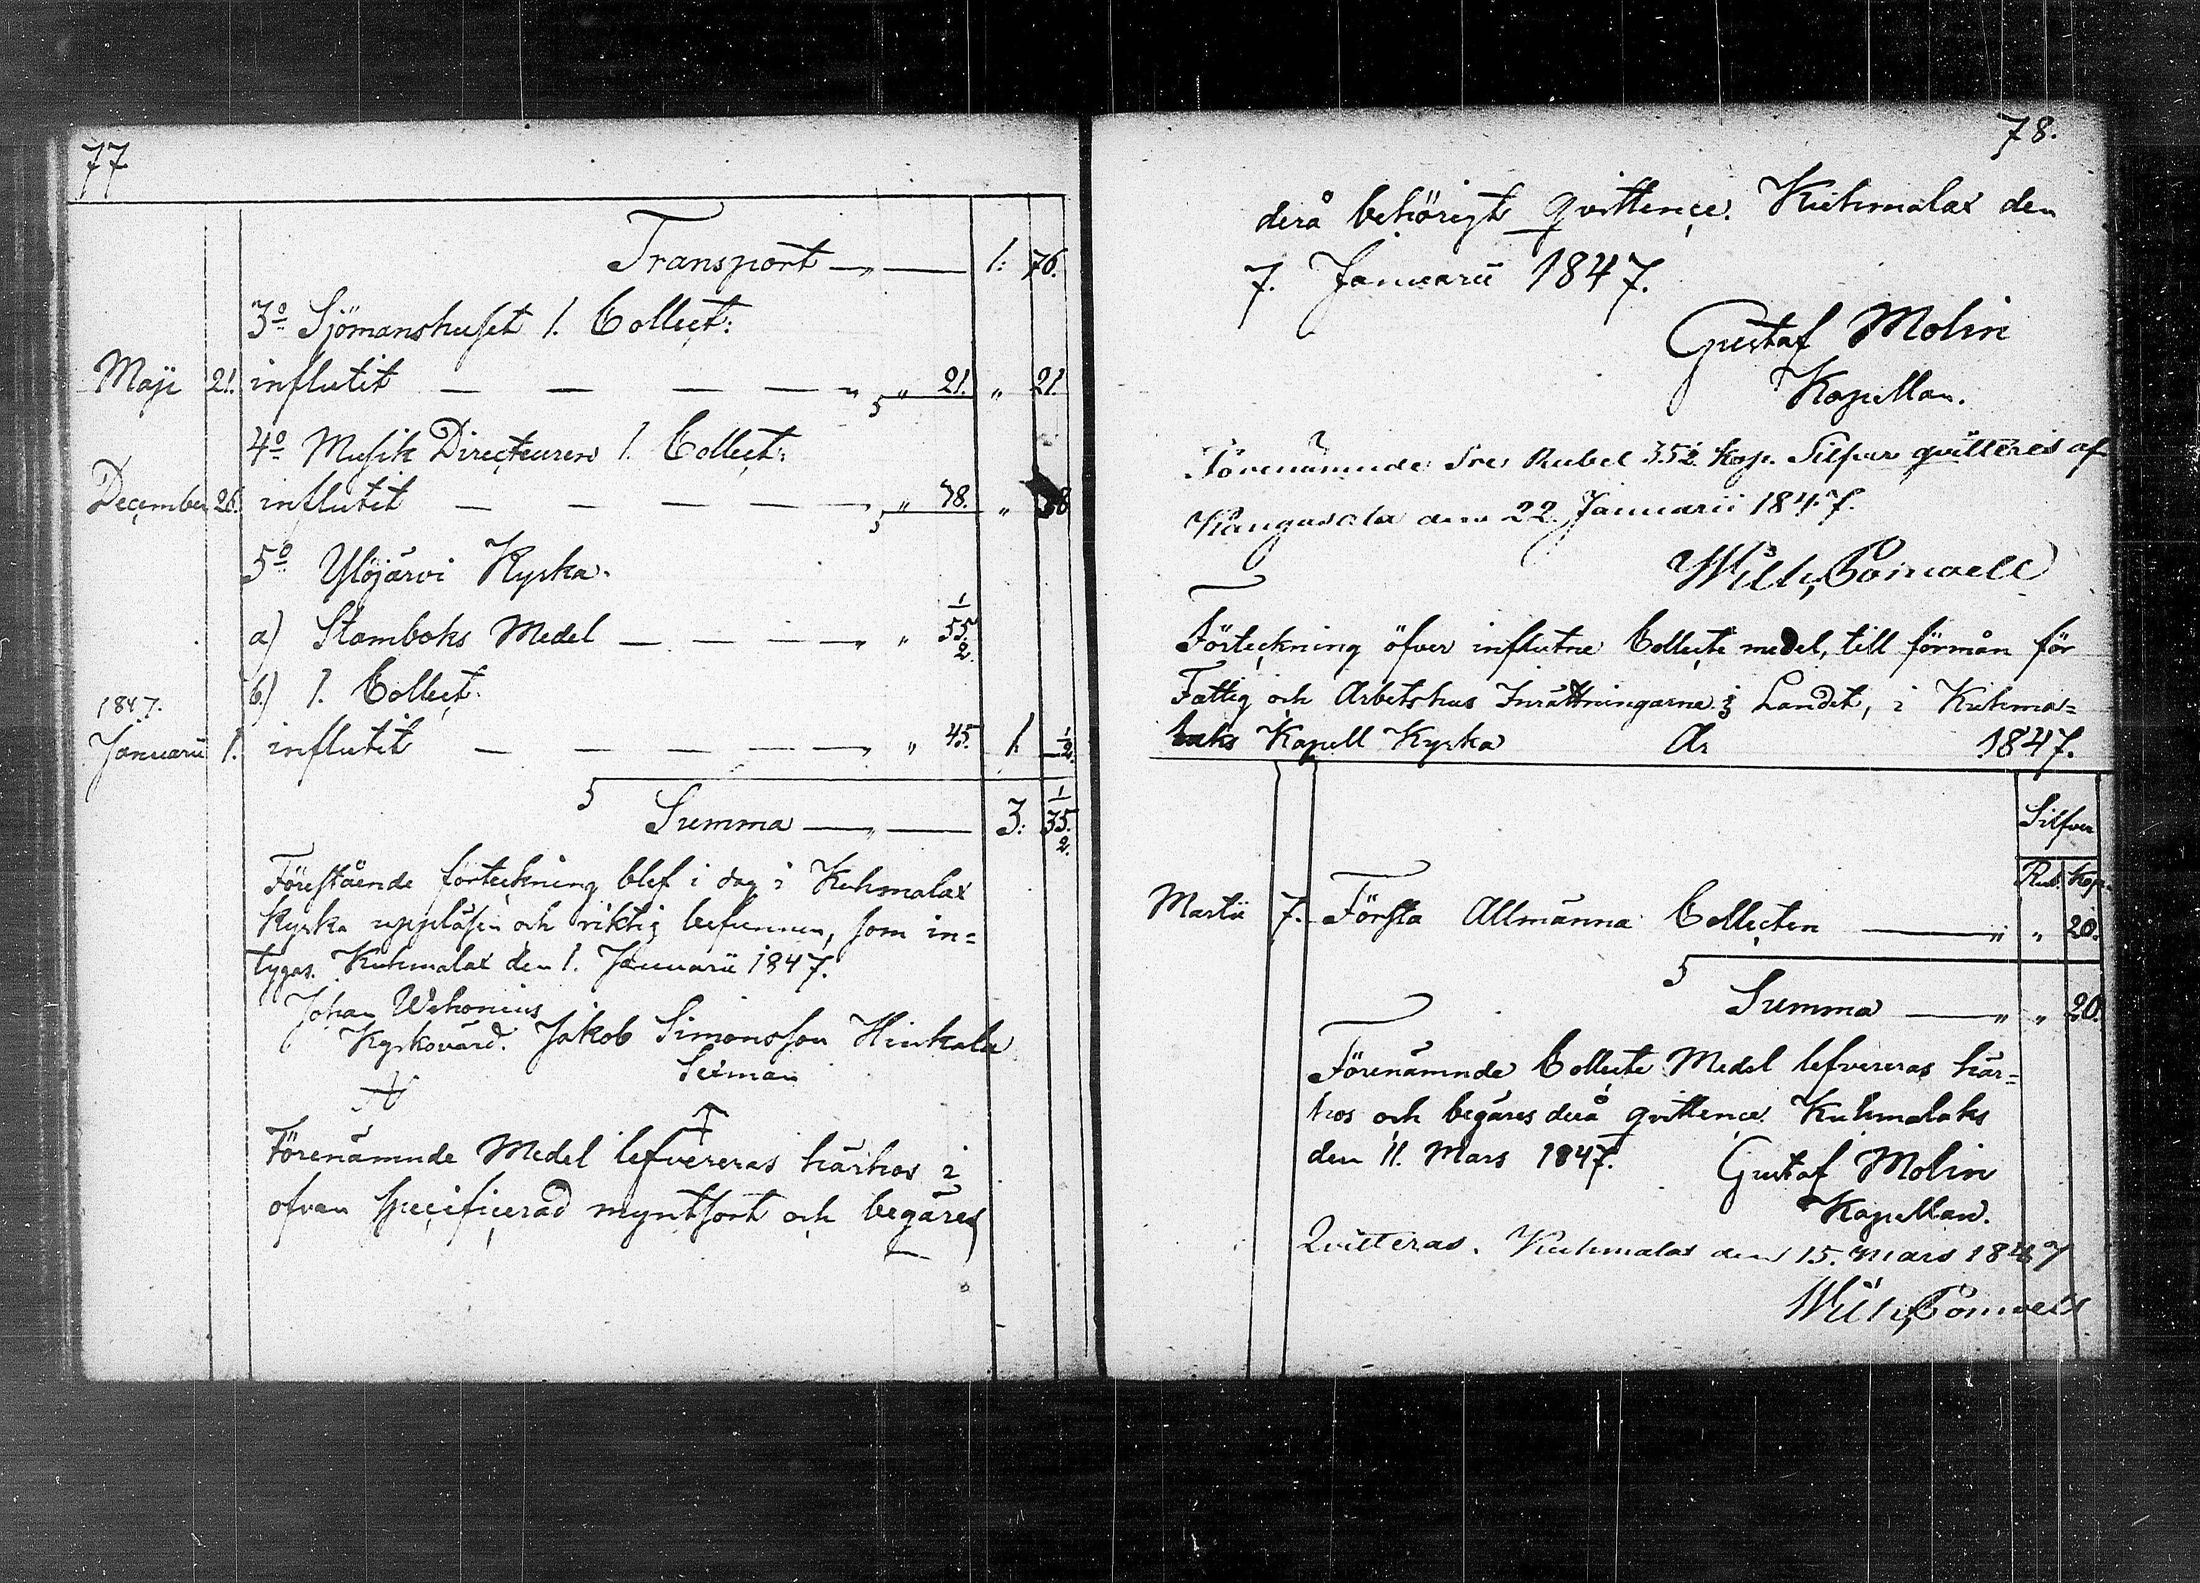 77
Transport — „ — 1: 76.
3o Sjömanshuset 1. Collect:
Maji 21. influtit — — — — „ „ 21. „ 21.
4o Musik Directeuren 1. Collect:
December 26. influtit — — — — „ „ 78. „ 38
5o Ylöjärvi Kyrka.
a) Stamboks Medel — — — „ „ 55 1/2.
b) 1. Collect.
1847.
Januarii 1. influtit — — — — „ „ 45. 1. 1/2.
Summa — „ — 3: 35 1/2.
Förestående förteckning blef i dag i Kuhmalax
Kyrka uppläsen och riktig befunnen, som in=
tygas. Kuhmalax den 1. Januarii 1847.
Johan Wehonius
Kyrkovärd. Jakob Simonsson Hinkala
Sexman
Förenämnde Medel lefvereras härhos i
ofvan specificerad myntsort och begäres
78.
derå behörigt qvittence. Kuhmalax den
7. Januarii 1847.
Gustaf Molin
Kapellan.
Förenämnde Tre Rubel 35 1/2 Kop. Silfver qvitteres af
Kangasala den 22 Januarii 1847.
Wilh,
Förteckning öfver influtne Collecte medel, till förmån för
Fattig och Arbetshus Inrättningarne i Landet, i Kuhma=
laks Kapell Kyrka År 1847.
Silfver
Rub. Kop.
Martii 7. Första Allmänna Collecten — „ „ 20.
Summa — „ „ 20.
Förenämnde Collecte Medel lefvereras här=
hos och begäres derå qvittence. Kuhmalaks
den 11. Mars 1847. Gustaf Molin
Kapellan.
Qvitteras. Kuhmalax den 15. Mars 1847
Wilh,